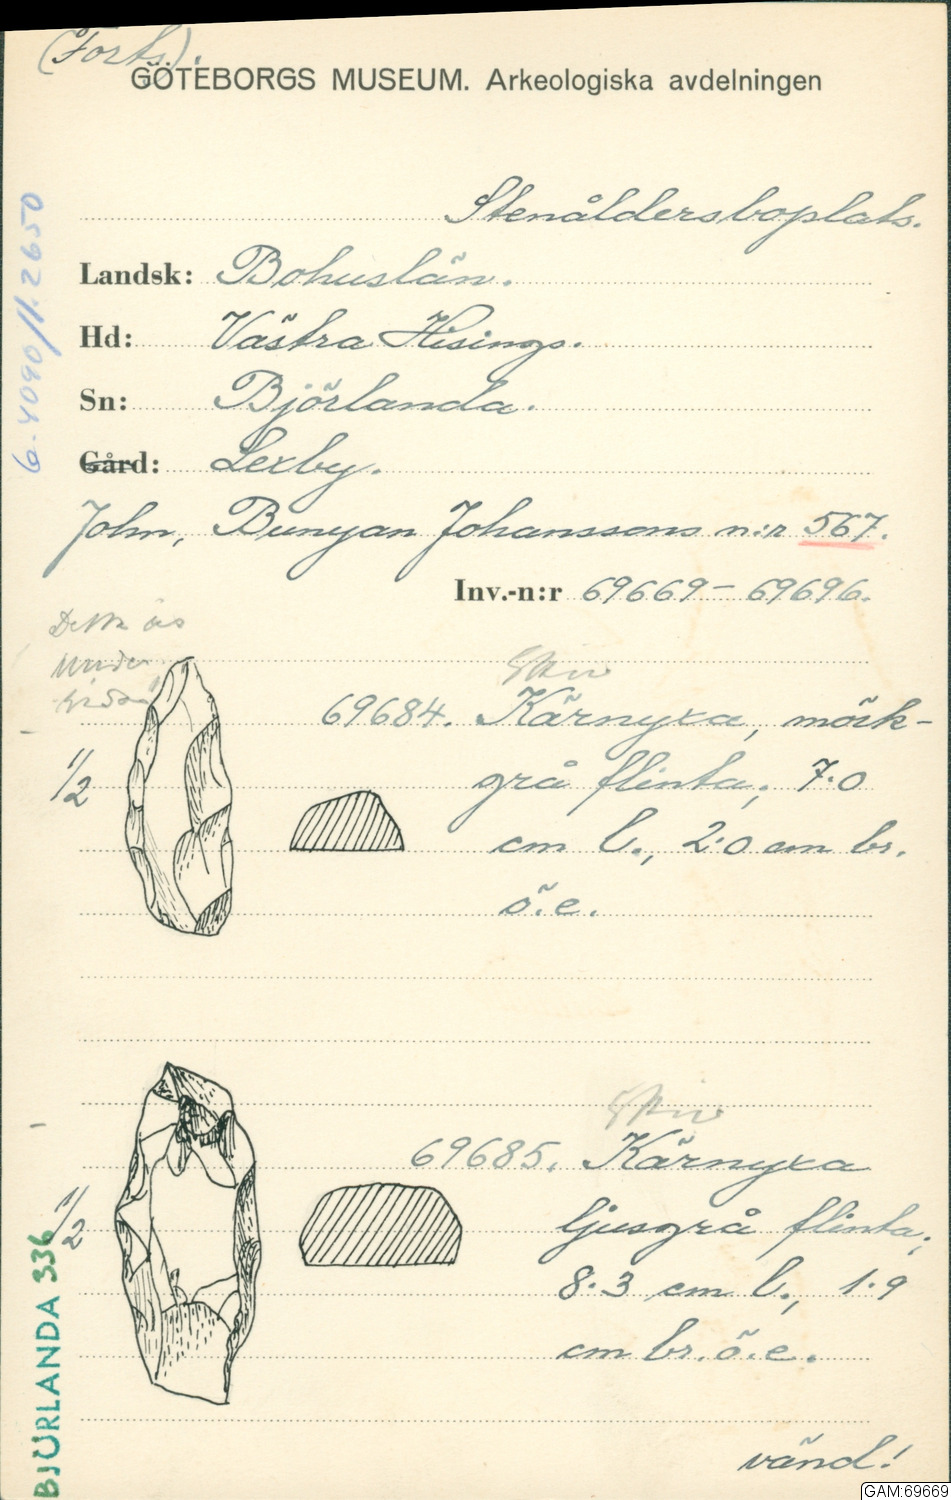 (Forts).
GÖTEBORGS MUSEUM. Arkeologiska avdelningen
Stenåldersboplats.
Landsk: Bohuslän.
Hd: Västra Hisings.
Sn: Björlanda.
Gård: Lexby.
John, Bunyan Johanssons n:r 567.
Inv.-n:r 69669-69696.
69684. Kärnyxa, mörk-
1/2
grå flinta; 7.0
cm l., 2.0 cm br.
ö.e.
69685. Kärnyxa
1/2
ljusgrå flinta;
8.3 cm l., 1.9
cm br. ö.e.
vänd!
6-4090/1.2650
BJÖRLANDA 336
GAM:69669